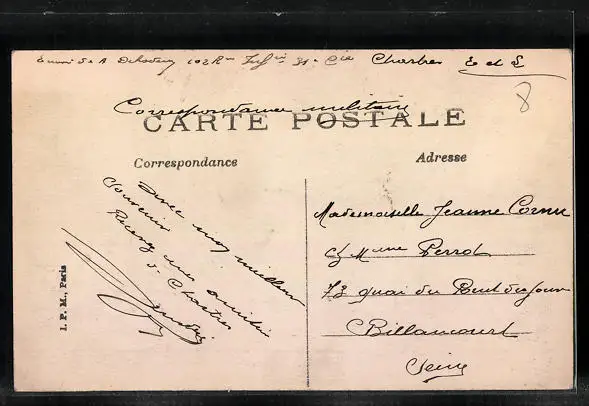 Envoi de A 102 R 31 Cie Chartres E et L
8
Correspondance militaire
CARTE POSTALE
Correspondance
Adresse
avec mon meilleur
Souvenir
Recevez mes amitiés
de Chartres
I. P. M., Paris
Mademoiselle Jeanne Cornu
ch Mme Perrot
73 quai du Point du Jour
Billancourt
Seine